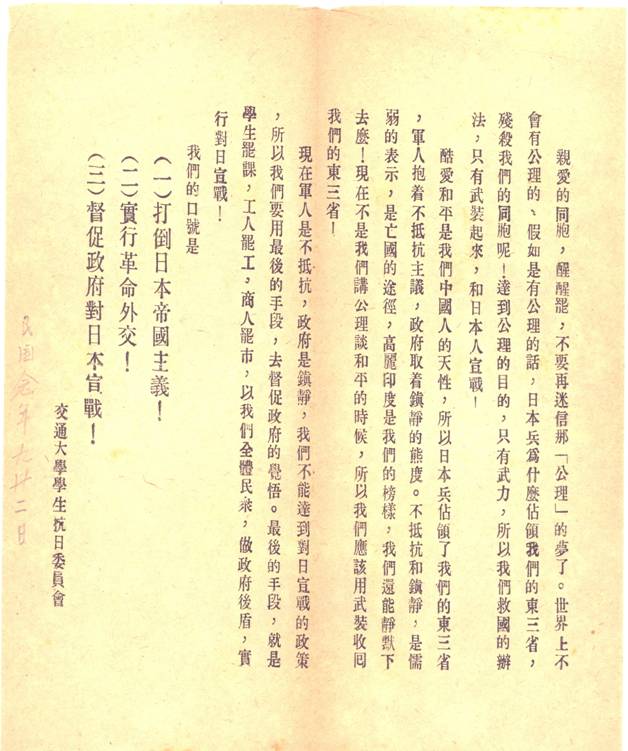 親愛的同胞，醒醒罷，不要再迷信那「公理」的夢了。世界上不
會有公理的、假如是有公理的話，日本兵爲什麽佔領我們的東三省，
殘殺我們的同胞呢！達到公理的目的，只有武力，所以我們救國的辦
法，只有武裝起來，和日本人宣戰！
酷愛和平是我們中國人的天性，所以日本兵佔領了我們的東三省
，軍人抱着不抵抗主議，政府取着鎭靜的態度。不抵抗和鎭靜，是懦
弱的表示，是亡國的途徑，高麗印度是我們的榜樣，我們還能靜默下
去麽！現在不是我們講公理談和平的時候，所以我們應該用武裝收囘
我們的東三省！
現在軍人是不抵抗，政府是鎭靜，我們不能達到對日宣戰的政策
，所以我們要用最後的手段，去督促政府的覺悟。最後的手段，就是
學生罷課，工人罷工，商人罷市，以我們全體民衆，做政府後盾，實
行對日宣戰！
我們的口號是
（一）打倒日本帝國主義！
（二）實行革命外交！
（三）督促政府對日本宣戰！
交通大學學生抗日委員會
民国念年九廿二日